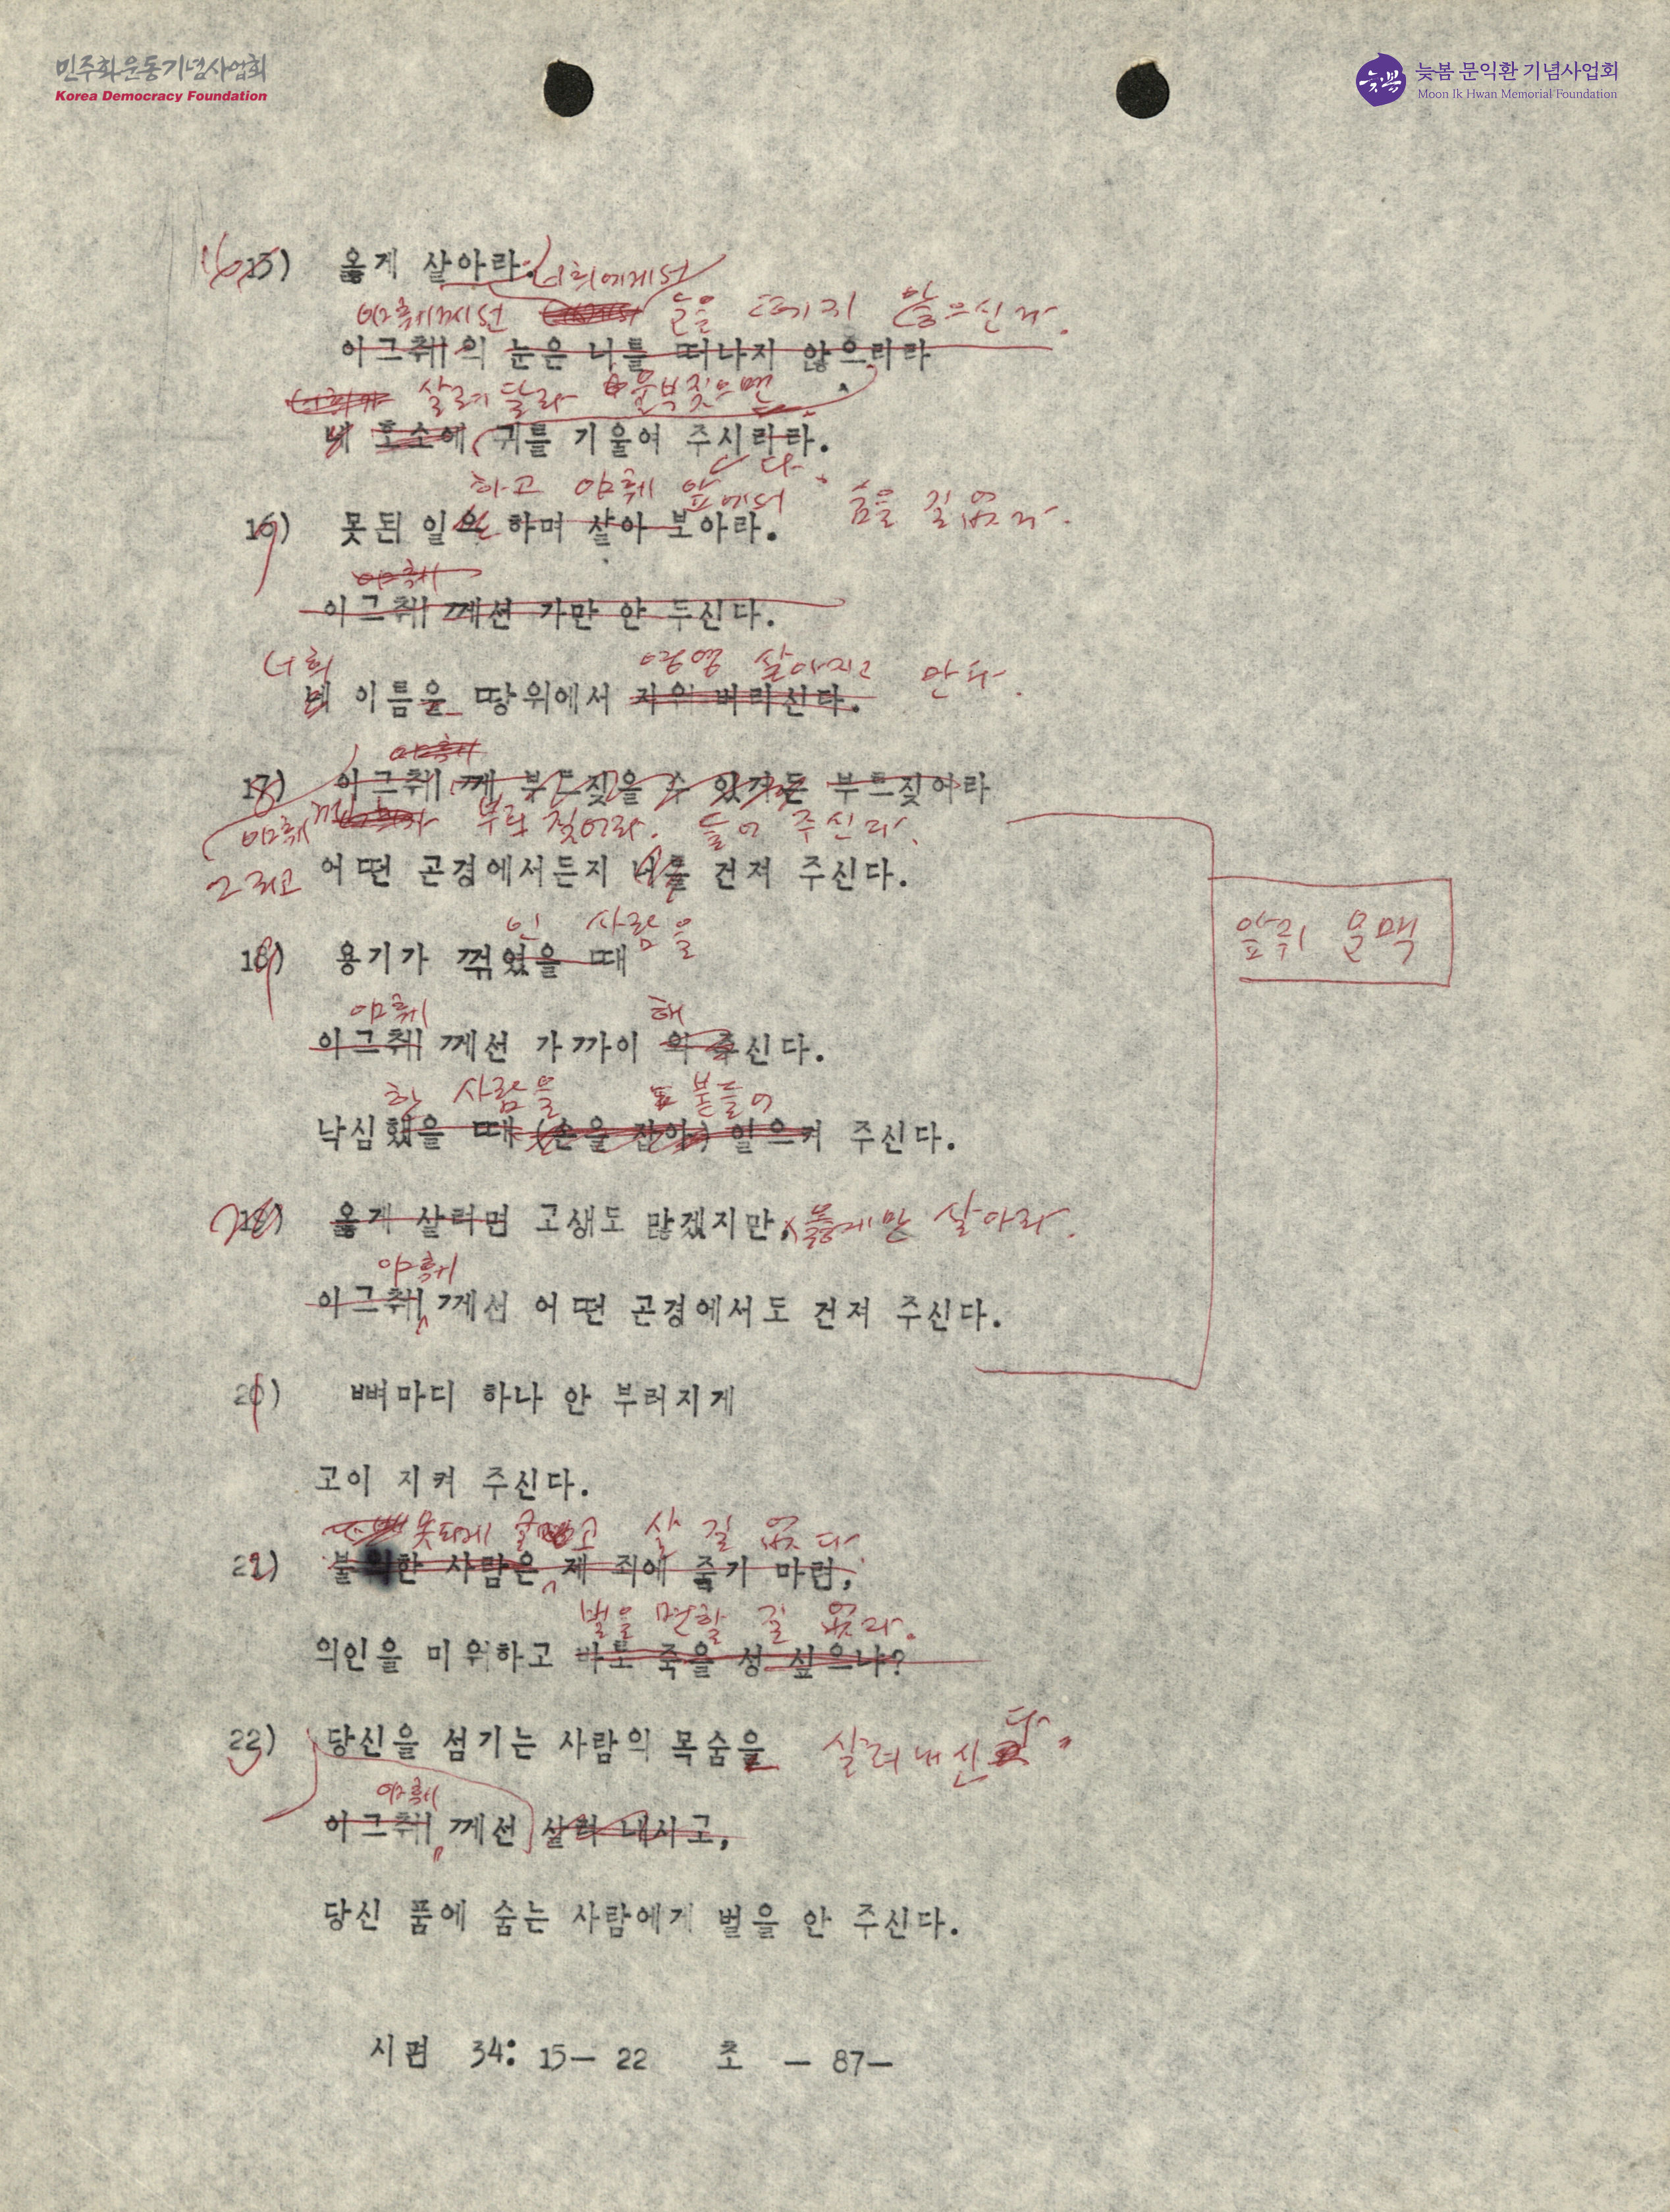 민주화운동기념사업회
Korea Democracy Foundation
늦봄
늦봄 문익환 기념사업회
Moon Ik Hwan Memorial Foundation
15) 옳게 살아라.
너희에게서
야훼께선 눈을 떼지 않으신다.
이그쥐의 눈은 너를 떠나지 않으리라
살려 달라 울부짖으면
네 호소에 귀를 기울여 주시리라.
다.
하고 야훼 앞에서 숨을 길 없다.
16) 못된 일을 하며 살아 보아라.
야훼
이그쥐 께선 가만 안 두신다.
너희 영영 살아지고 만다.
네 이름을 땅위에서 지워 버리신다.
야훼
17) 이그쥐 께 부르짖을 수 있거든 부르짖어라
야훼께 부르짖어라. 들어 주신다.
그리고 어떤 곤경에서든지 너를 건져 주신다.
인 사람을
18) 용기가 꺾였을 때
야훼 해
이그쥐 께선 가까이 와 주신다.
한 사람을 붙들어
낙심했을 때 (손을 잡아) 일으켜 주신다.
옳게 살려면 고생도 많겠지만, 옳게만 살아라.
야훼
이그쥐 께선 어떤 곤경에서도 건져 주신다.
앞뒤 문맥
20) 뼈마디 하나 안 부러지게
고이 지켜 주신다.
못되게 굴고 살 길 없다.
한 사람은 제 죄에 죽기 마련,
벌을 면할 길 없다.
의인을 미워하고 바로 죽을 성 싶으냐?
22) 당신을 섬기는 사람의 목숨을 살려 내신다.
야훼
이그쥐 께선 살려 내시고,
당신 품에 숨는 사람에게 벌을 안 주신다.
시편 34: 15— 22 초 — 87—